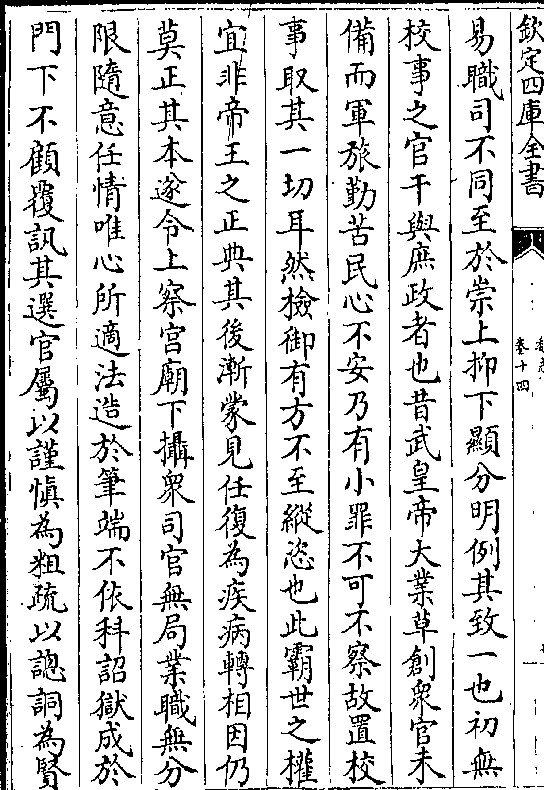 欽定四庫全書
卷十四
易職司不同至於崇上抑下顯分明例其致一也初無
校事之官干與庶政者也昔武皇帝大業草創衆官未
備而軍旅勤苦民心不安乃有小罪不可不察故置校
事取其一切耳然檢御有方不至縱恣也此霸世之權
宜非帝王之正典其後漸蒙見任復為疾病轉相因仍
莫正其本遂令上察宫廟下攝衆司官無局業職無分
限隨意任情唯心所適法造於筆端不依科詔獄成於
門下不顧覆訊其選官屬以謹慎為粗疏以謥詷為賢